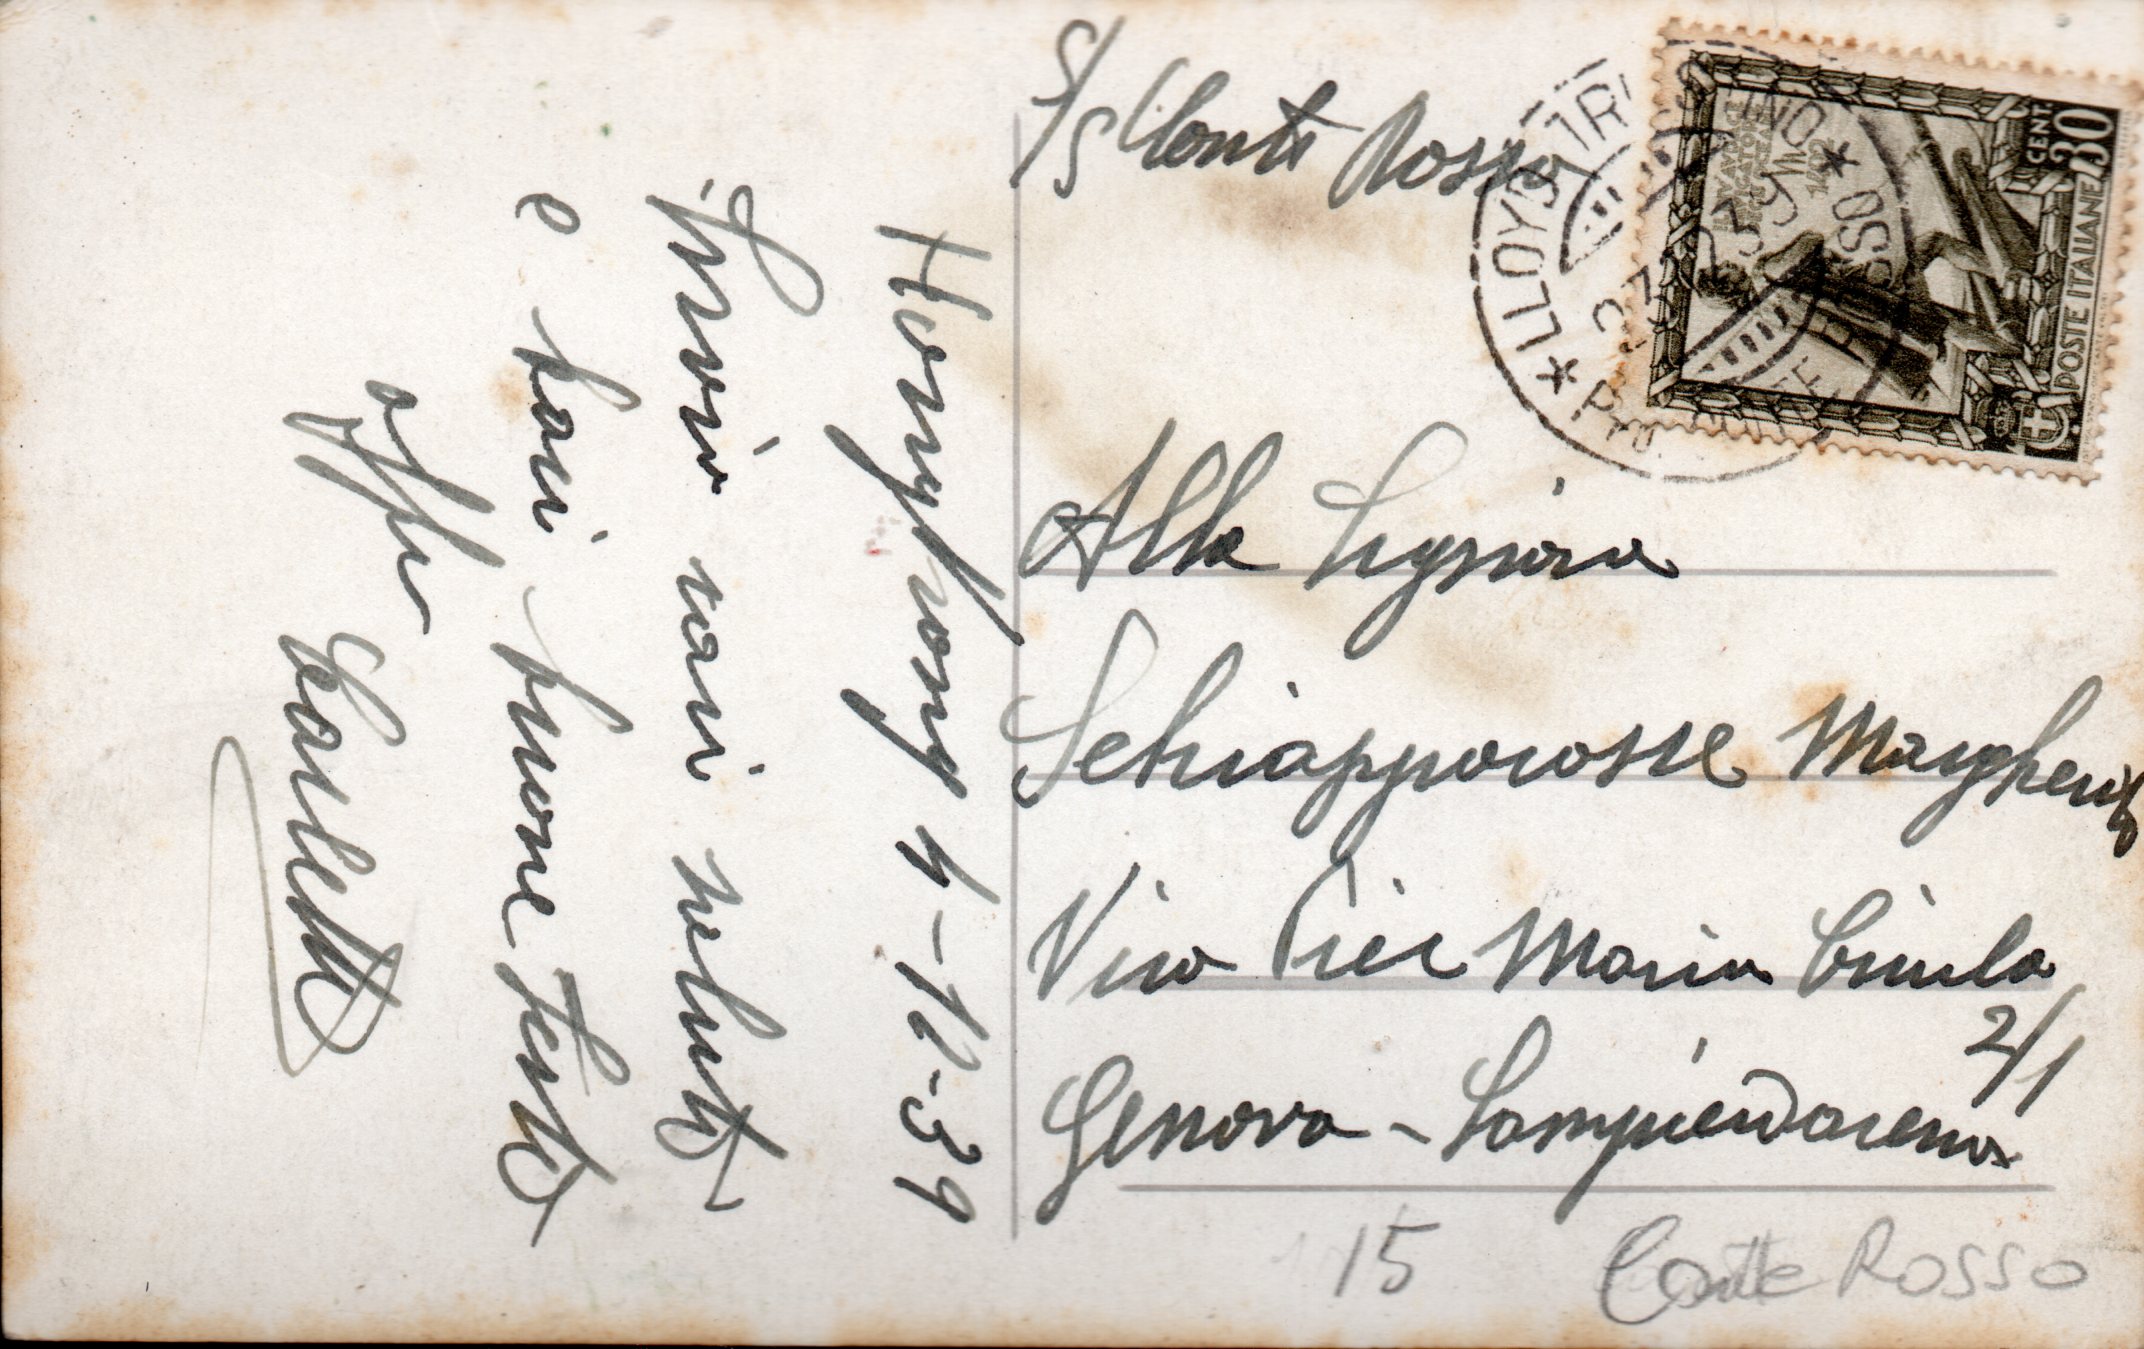 S/S Conte Rosso
Hongkong 4-12-39
Invio cari saluti
e baci buone feste
Carletto
Alla Signora
Schiappacasse Margherita
Via Pier Maria
2/1
Genova - Sampierdarena
15
Conte Rosso
LLOYD TRIESTINO
POSTE ITALIANE
CENT. 30